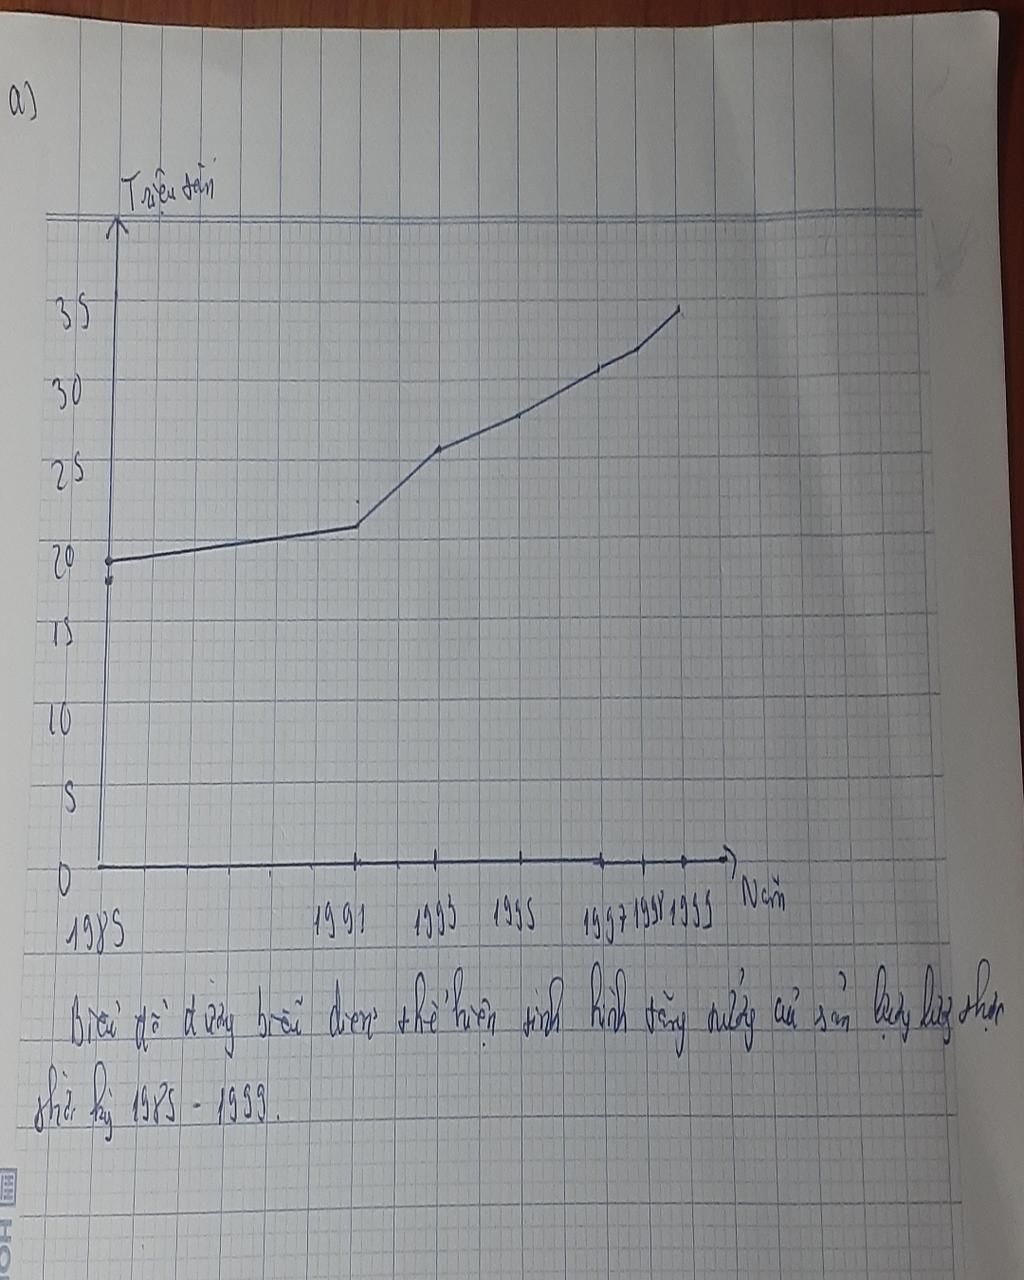 a)
Triệu tấn
35
30
25
20
15
10
5
0
1985 1991 1993 1995 1997 1998 1999 Năm
Biểu đồ đường biểu diễn thể hiện tình hình tăng trưởng của sản lượng lương thực
thời kỳ 1985 - 1999.